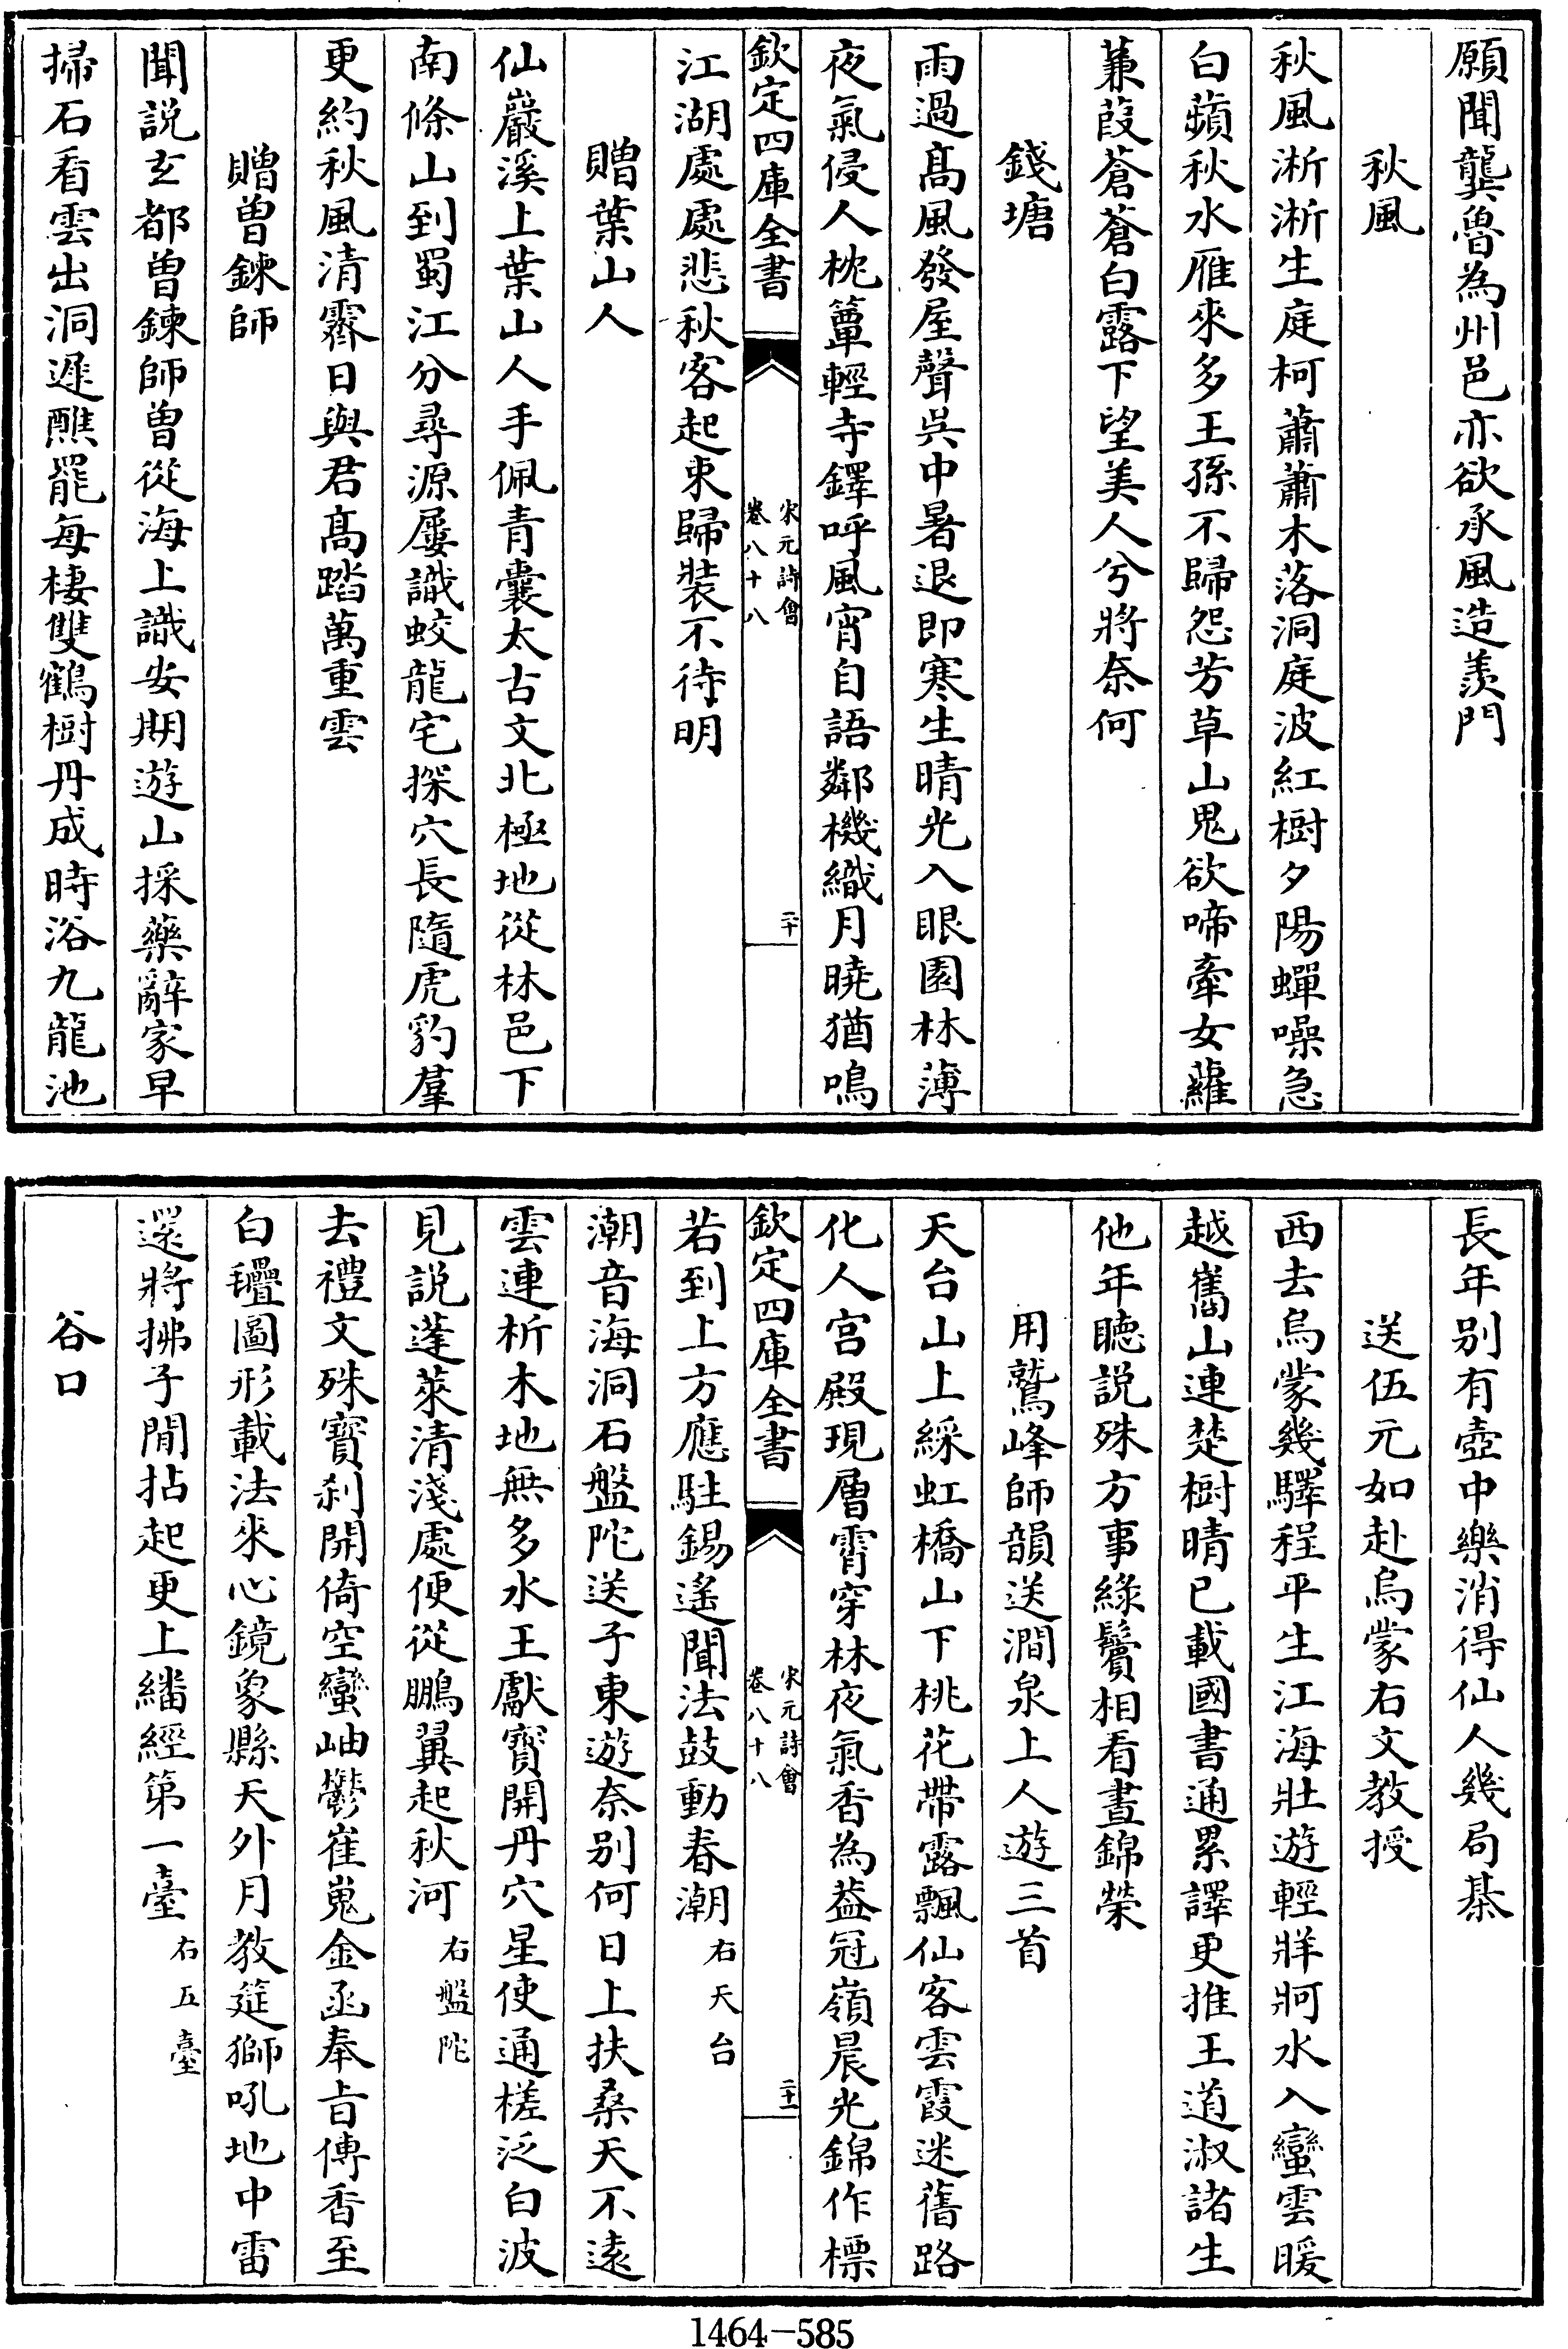 願聞龔魯為州邑亦欲承風造羨門
秋風
秋風淅淅生庭柯蕭蕭木落洞庭波紅樹夕陽蟬噪急
白蘋秋水雁來多王孫不歸怨芳草山鬼欲啼牽女蘿
蒹葭蒼蒼白露下望美人兮將奈何
錢塘
雨過髙風發屋聲吳中暑退即寒生晴光入眼園林薄
夜氣侵人枕簟輕寺鐸呼風宵自語鄰機織月曉猶鳴
欽定四庫全書 宋元詩會卷八十八 二十
江湖處處悲秋客起束歸裝不待明
贈葉山人
仙巖溪上葉山人手佩青囊太古文北極地從林邑下
南條山到蜀江分尋源屢識蛟龍宅探穴長隨虎豹羣
更約秋風清霽日與君髙踏萬重雲
贈曾鍊師
聞説玄都曾鍊師曾從海上識安期遊山採藥辭家早
掃石看雲出洞遲醮罷每棲雙鶴樹丹成時浴九龍池
長年别有壺中樂消得仙人幾局棊
送伍元如赴烏蒙右文教授
西去烏蒙幾驛程平生江海壯遊輕牂牁水入蠻雲暖
越嶲山連楚樹晴已載國書通累譯更推王道淑諸生
他年聽説殊方事綠鬢相看晝錦榮
用鷲峰師韻送澗泉上人遊三首
天台山上綵虹橋山下桃花帶露飄仙客雲霞迷舊路
化人宫殿現層霄穿林夜氣香為葢冠嶺晨光錦作標
欽定四庫全書 宋元詩會卷八十八 二十一
若到上方應駐錫遙聞法鼓動春潮右天台
潮音海洞石盤陀送子東遊奈别何日上扶桑天不逺
雲連析木地無多水王獻寳開丹穴星使通槎泛白波
見説蓬萊清淺處便從鵬翼起秋河右盤陀
去禮文殊寳刹開倚空蠻岫鬱崔嵬金函奉㫖傳香至
白㲲圖形載法來心鏡象縣天外月教筵獅吼地中雷
還將拂子閒拈起更上繙經第一臺右五臺
谷口
1464-585